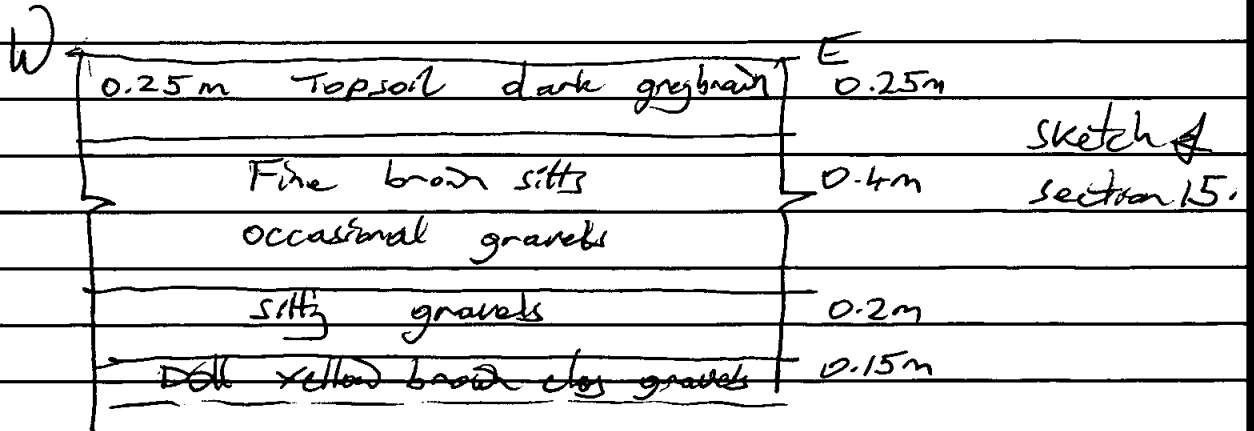 W E
0.25m Topsoil dark greybrown 0.25m
sketch of
Fine brown silts 0.4m section 15.
occasional gravels
silty gravels 0.2m
Dull yellow brown clay gravels 0.15m